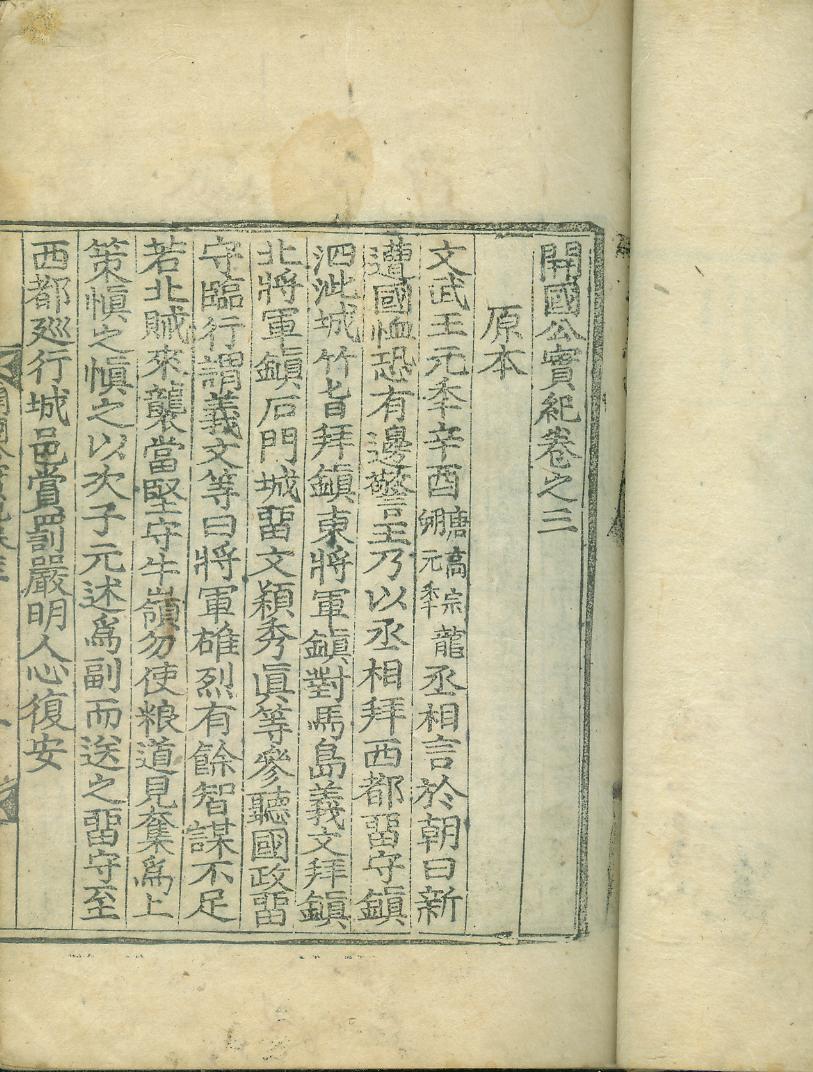 開國公實紀卷之三
原本
文武王元年辛酉唐高宗龍朔元年丞相言於朝曰新
遭國恤恐有邊警王乃以丞相拜西都留守鎮
泗沘城竹旨拜鎮東將軍鎮對馬島義文拜鎮
北將軍鎮石門城留文穎秀眞等參聽國政留
守臨行謂義文等曰將軍雄烈有餘智謀不足
若北賊來襲當堅守牛嶺勿使粮道見奪爲上
策愼之愼之以次子元述爲副而送之留守至
西都廵行城邑賞罰嚴明人心復安